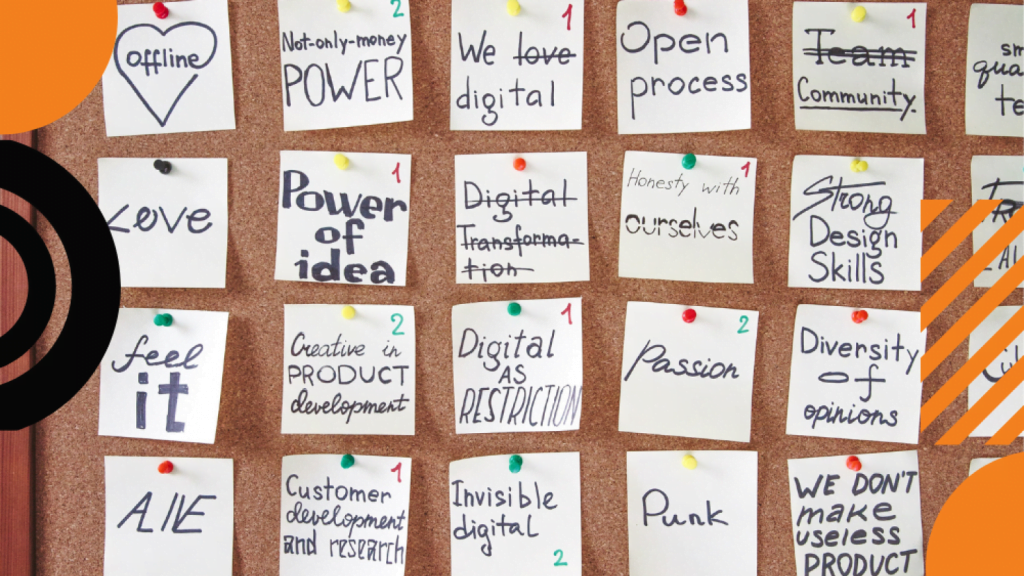 offline
2
Not-only-money
POWER
1
We love
digital
Open
process
1
Team
Community.
Love
1
Power
of
idea
Digital
Transforma-
tion
1
Honesty with
ourselves
Strong
Design
Skills
feel
it
2
Creative in
PRODUCT
development
1
Digital
AS
RESTRICTION
2
Passion
Diversity
of
opinions
1
Customer
development
and research
Invisible
digital
2
Punk
WE DON'T
make
useless
PRODUCT